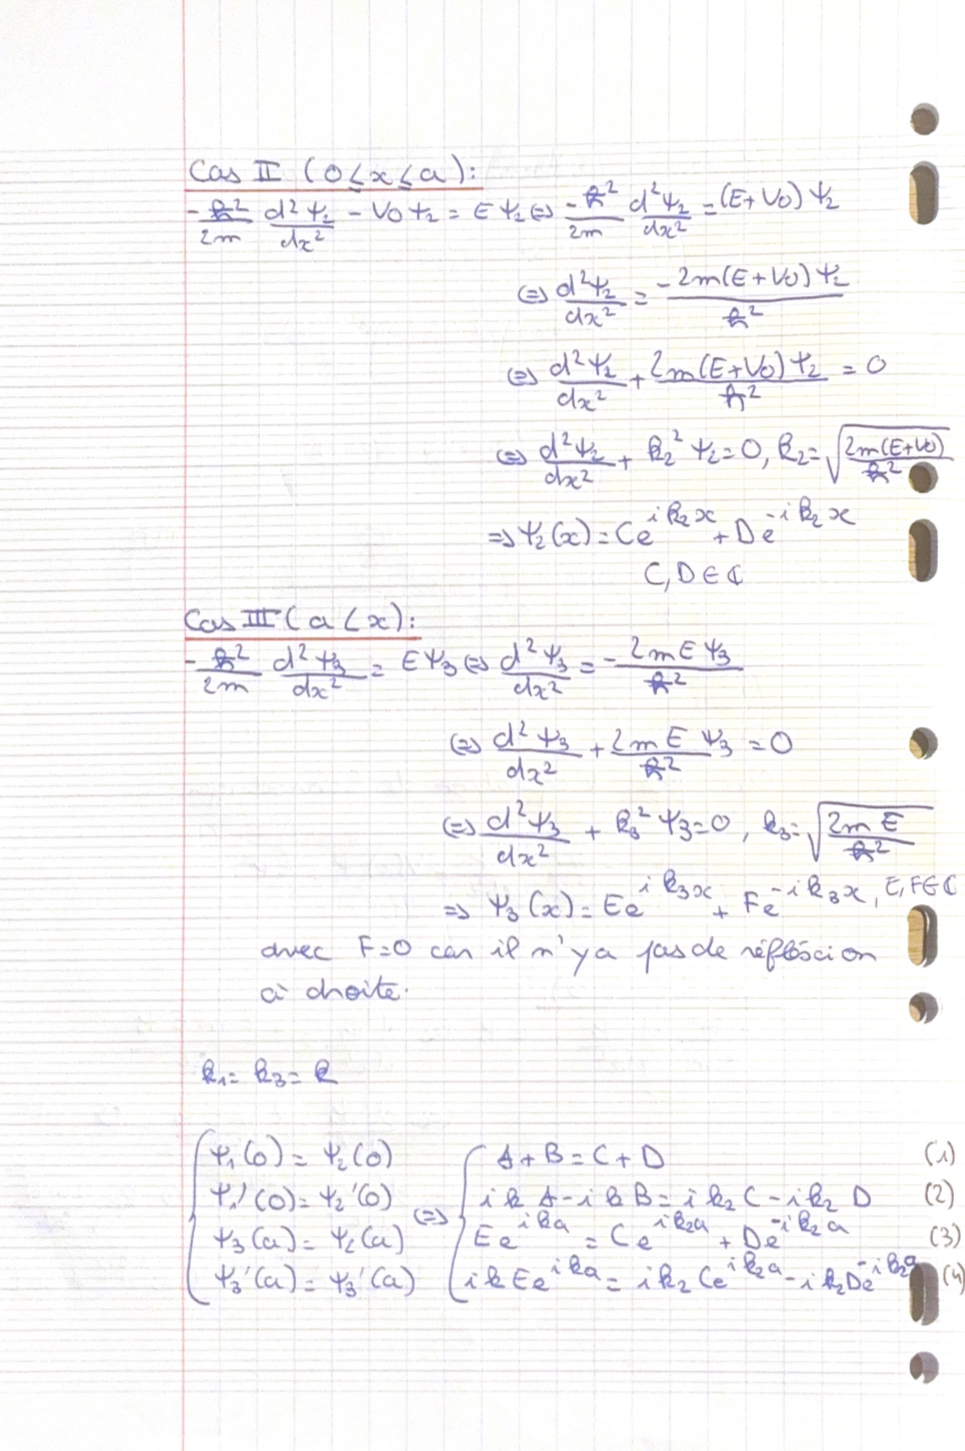 Cas II (0 ≤ x ≤ a) :
-ħ²/2m d²ψ₂/dx² - V0 ψ₂ = E ψ₂ ⇔ -ħ²/2m d²ψ₂/dx² = (E + V0) ψ₂
⇔ d²ψ₂/dx² = -2m(E + V0) ψ₂/ħ²
⇔ d²ψ₂/dx² + 2m(E+V0) ψ₂/ħ² = 0
⇔ d²ψ₂/dx² + k₂² ψ₂ = 0, k₂ = √(2m(E+V0)/ħ²)
⇒ ψ₂(x) = Ce^{i k₂ x} + De^{-i k₂ x}
C, D ∈ ℂ
Cas III (a < x) :
-ħ²/2m d²ψ₃/dx² = E ψ₃ ⇔ d²ψ₃/dx² = -2mE ψ₃/ħ²
⇔ d²ψ₃/dx² + 2mE ψ₃/ħ² = 0
⇔ d²ψ₃/dx² + k₃² ψ₃ = 0, k₃ = √(2mE/ħ²)
⇒ ψ₃(x) = Ee^{i k₃ x} + Fe^{-i k₃ x}, E, F ∈ ℂ
avec F=0 car il n'y a pas de réfléscion
à droite.
k₁ = k₃ = k
{ ψ₁(0) = ψ₂(0) ⇔ { A + B = C + D (1)
ψ₁'(0) = ψ₂'(0) i k A - i k B = i k₂ C - i k₂ D (2)
ψ₃(a) = ψ₂(a) Ee^{i k a} = Ce^{i k₂ a} + De^{-i k₂ a} (3)
ψ₃'(a) = ψ₃'(a) i k Ee^{i k a} = i k₂ Ce^{i k₂ a} - i k₂ De^{-i k₂ a} (4)